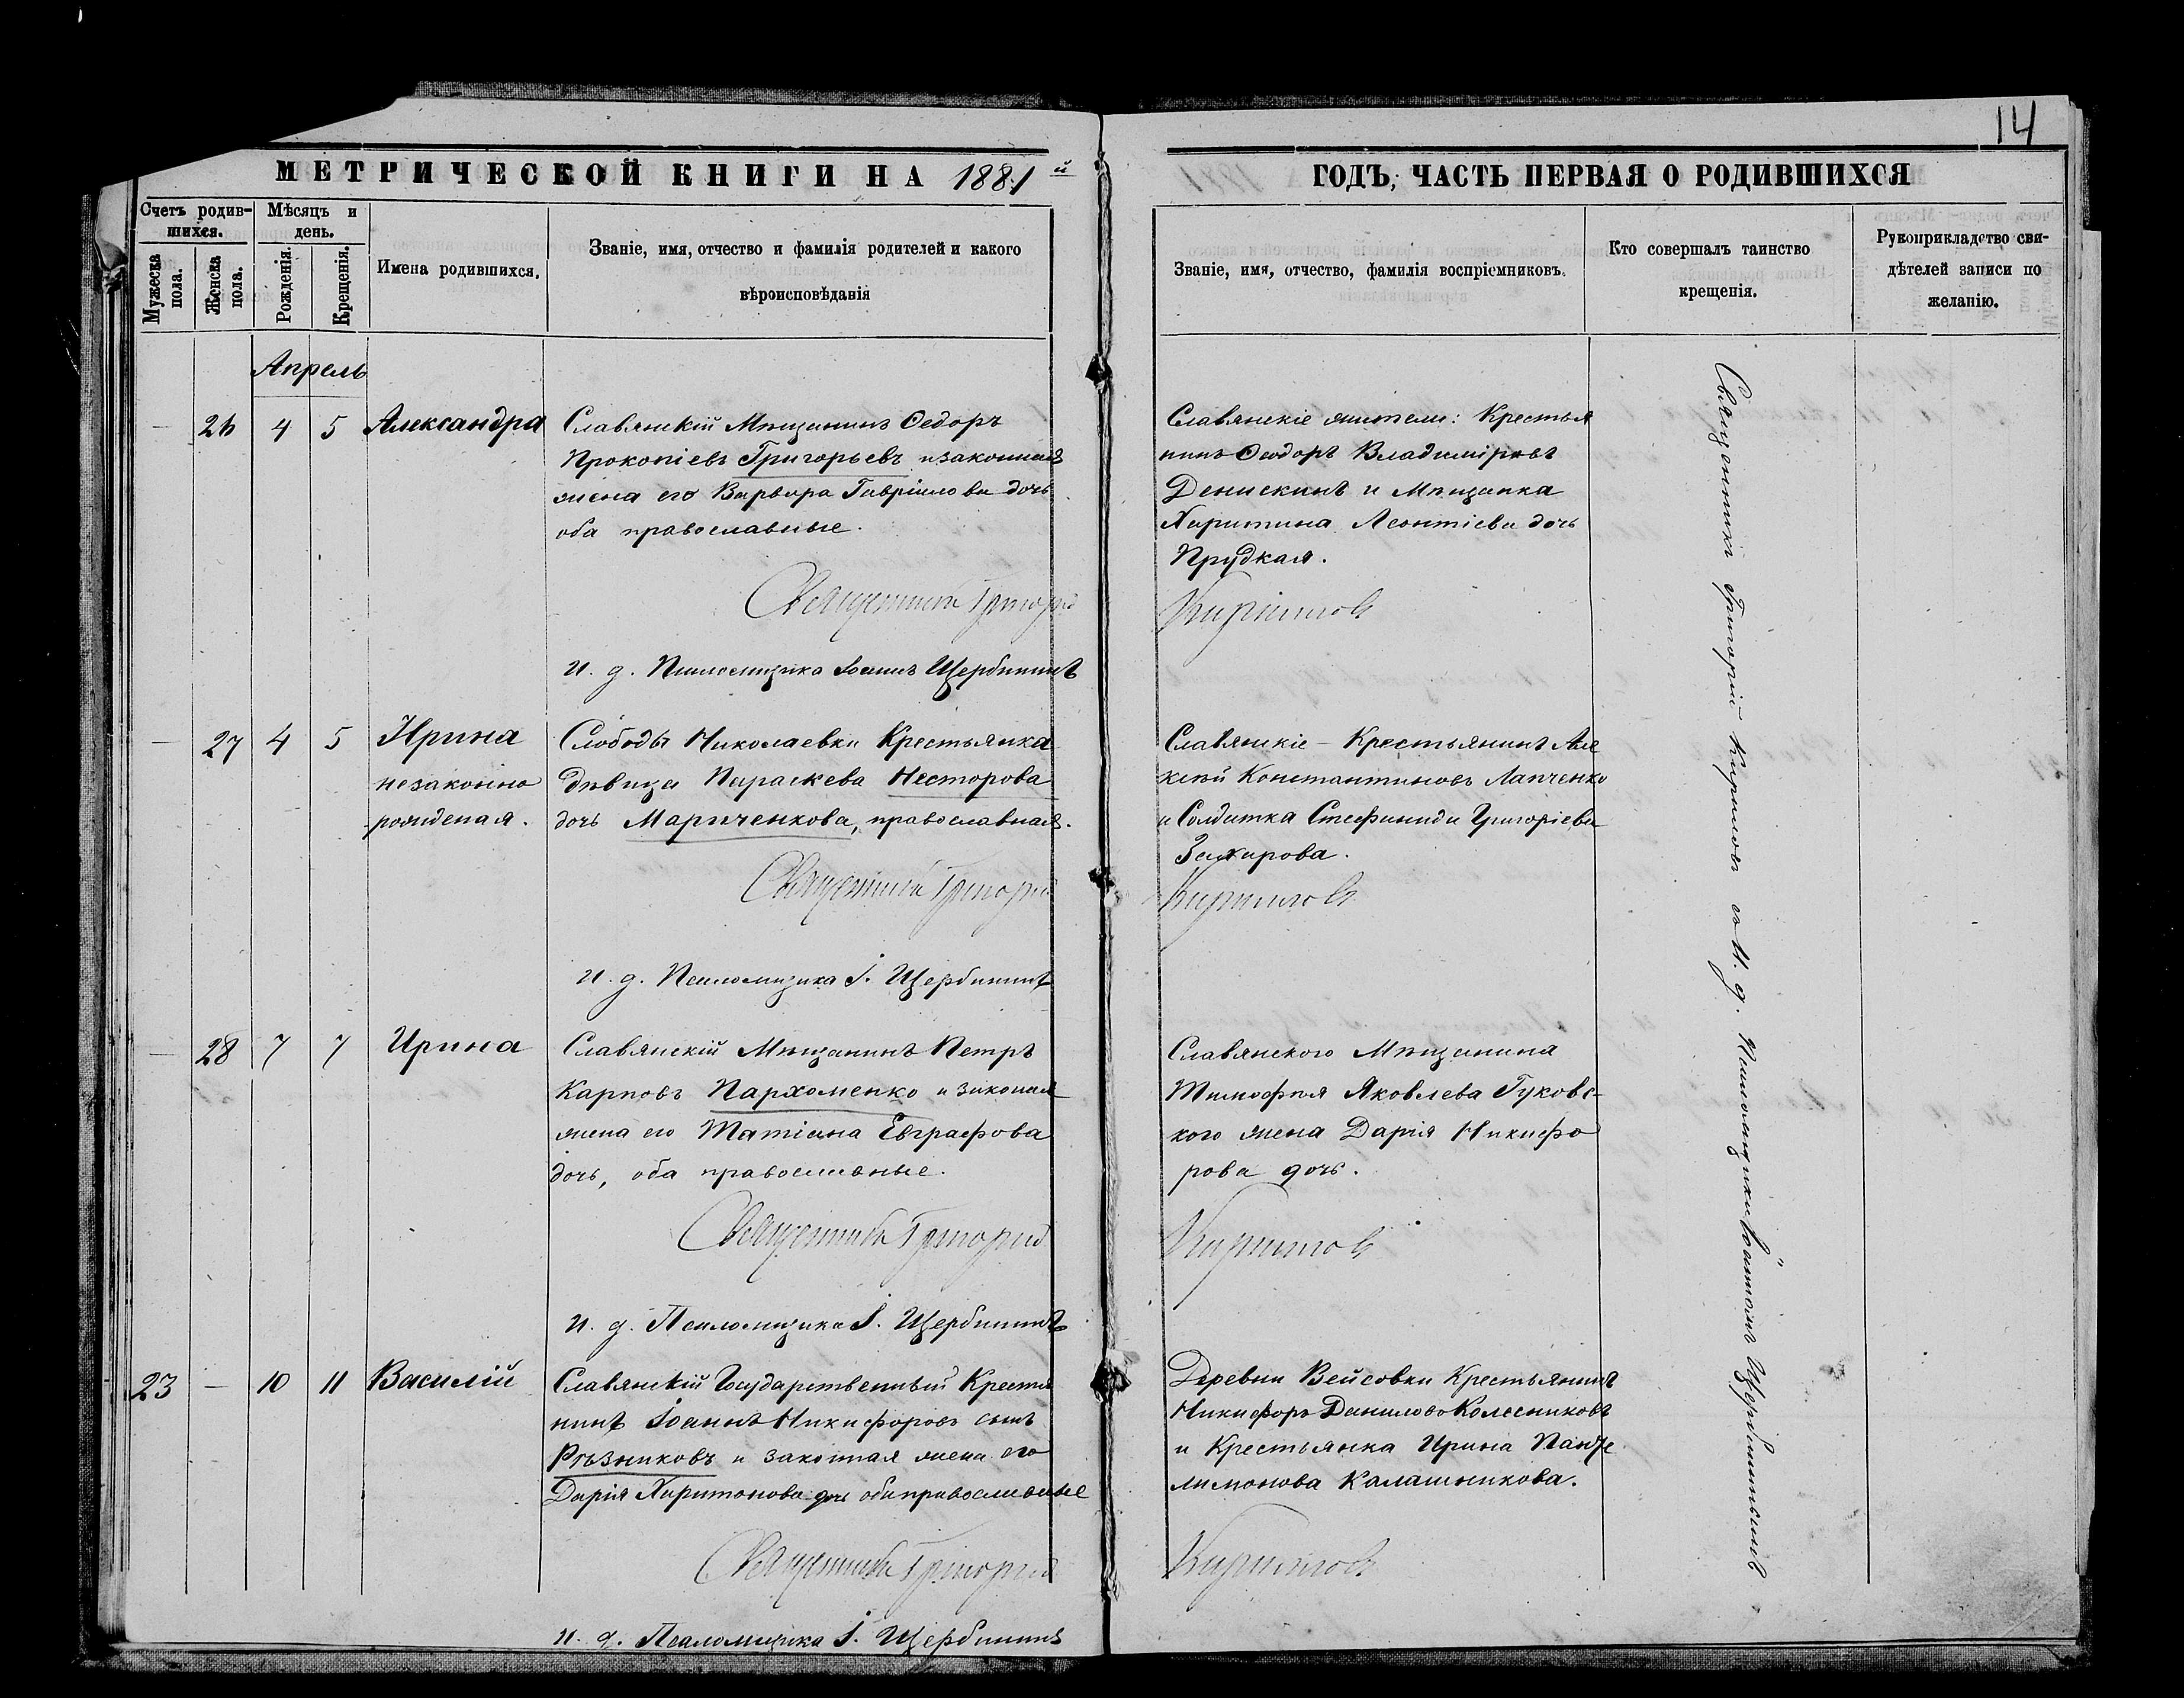 14
МЕТРИЧЕСКОЙ КНИГИ НА 1881 й
ГОДЪ, ЧАСТЬ ПЕРВАЯ О РОДИВШИХСЯ
Счетъ родив-
шихся.
Мужеска
пола.
Женска
пола.
Мѣсяцъ и
день.
Рожденія.
Крещенія.
Имена родившихся.
Званіе, имя, отчество и фамилія родителей и какого
вѣроисповѣданія
Званіе, имя, отчество, фамилія воспріемниковъ.
Кто совершалъ таинство
крещенія.
Рукоприкладство сви-
дѣтелей записи по
желанію.
Апрель
— 26 4 5 Александра
Славянскій Мѣщанинъ Ѳедоръ
Прокопіевъ Григорьевъ и законная
жена его Варвара Гавріилова дочь
оба православные.
Священникъ Григорій
и. д. Псаломщика Іоаннъ Щербининъ
Славянскіе жители: Крестья
нинъ Ѳеодоръ Владиміровъ
Денискинъ и Мѣщанка
Харитина Леонтіева дочь
Прудкая.
Кирилловъ
— 27 4 5 Ирина
незаконно
рожденая.
Слободы Николаевки Крестьянка
дѣвица Параскева Несторова
дочь Марѣченкова, православная.
Священникъ Григорій
и. д. Псаломщика І. Щербининъ
Славянскіе – Крестьянинъ Але
ксѣй Константиновъ Лапченко
и Солдатка Стефанида Григоріева
Захарова.
Кирилловъ
— 28 7 7 Ирина
Славянскій Мѣщанинъ Петръ
Карповъ Пархоменко и законная
жена его Татіана Евграфова
дочь, оба православные.
Священникъ Григорій
и. д. Псаломщика І. Щербининъ
Славянского Мѣщанина
Тимофѣя Яковлева Гуковс-
кого жена Дарія Никифо
рова дочь.
Кирилловъ
23 — 10 11 Василій
Славянскій Государственный Крестья
нинъ Іоаннъ Никифоровъ сынъ
Рѣзниковъ и законная жена его
Дарія Харитонова дочь оба православные
Священникъ Григорій
и. д. Псаломщика І. Щербининъ
Деревни Вейсовки Крестьянинъ
Никифоръ Даниловъ Колесниковъ
и Крестьянка Ирина Панте
лимонова Калашникова.
Кирилловъ
Священникъ Григорій Кирилловъ съ И. д. Псаломщика Іоанномъ Щербининымъ